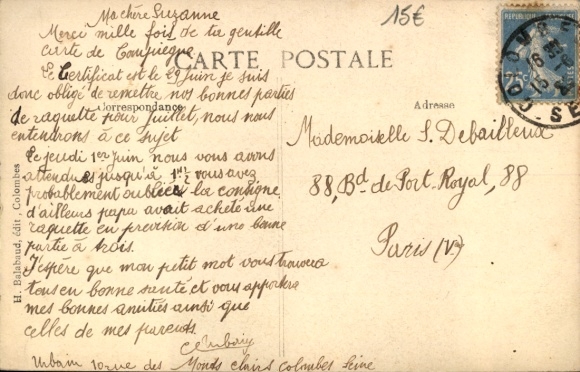 Ma chère Suzanne
15€
Merci mille fois de ta gentille
carte de Compiègne
CARTE POSTALE
Le Certificat est le 29 juin je suis
donc obligé de remettre nos bonnes parties
Correspondance
Adresse
de raquette pour Juillet, nous nous
entendrons à ce sujet
Le jeudi 1er Juin nous vous avons
attendues jusqu'à vous avez
probablement oubliée la consigne
d'ailleurs papa avait acheté une
raquette en prévision d'une bonne
partie à trois.
J'espère que mon petit mot vous trouvera
tous en bonne santé et vous apportera
mes bonnes amitiés ainsi que
celles de mes parents
Urbain 10 rue des Monts clairs Colombes Seine
Mademoiselle S. Debailleux
88, Bd de Port Royal, 88
Paris (Ve)
H. Balabaud, édit., Colombes
REPUBLIQUE FRANÇAISE
COLOMBES